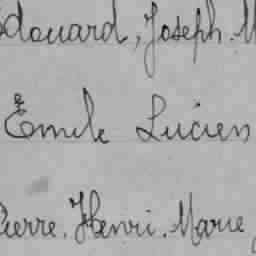 Edouard, Joseph. M
Émile Lucien
Pierre. Henri. Marie